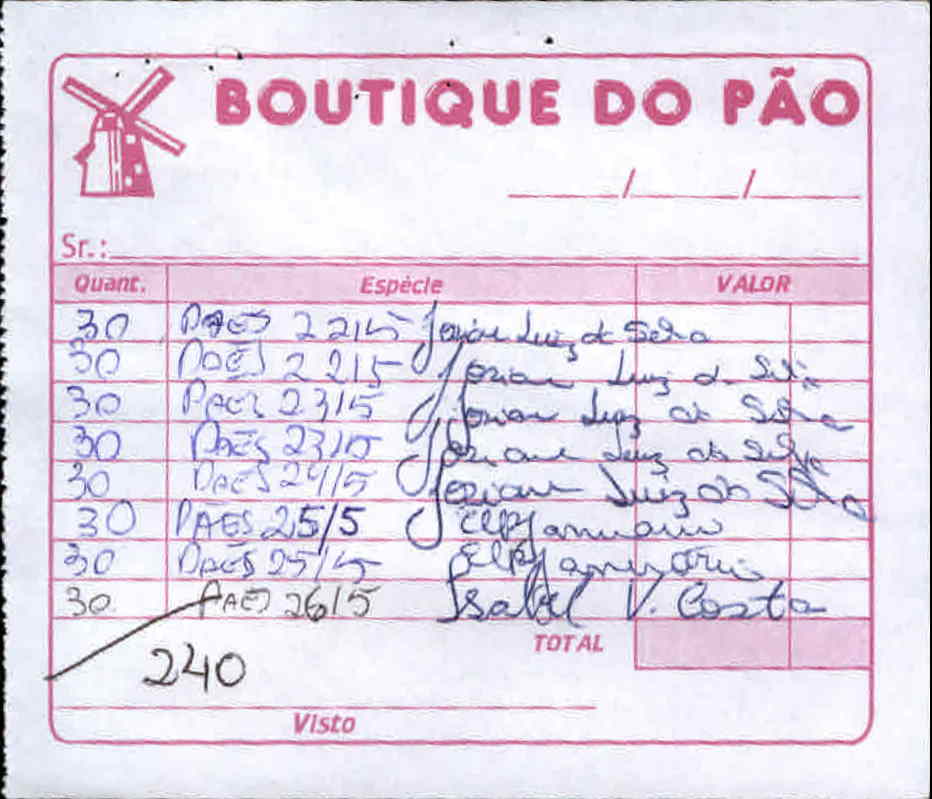 BOUTIQUE DO PÃO
____/____/____
Sr.:
Quant. Espècie VALOR
30 PAES 22/5 Josiane Luiz da Silva
30 PAES 22/5 Josiane Luiz da Silva
30 PAES 23/5 Josiane Luiz da Silva
30 PAES 23/5 Josiane Luiz da Silva
30 PAES 24/5 Josiane Luiz da Silva
30 PAES 25/5
30 PAES 25/5
30 PAES 26/5 Isabel V. Costa
TOTAL
240
Visto